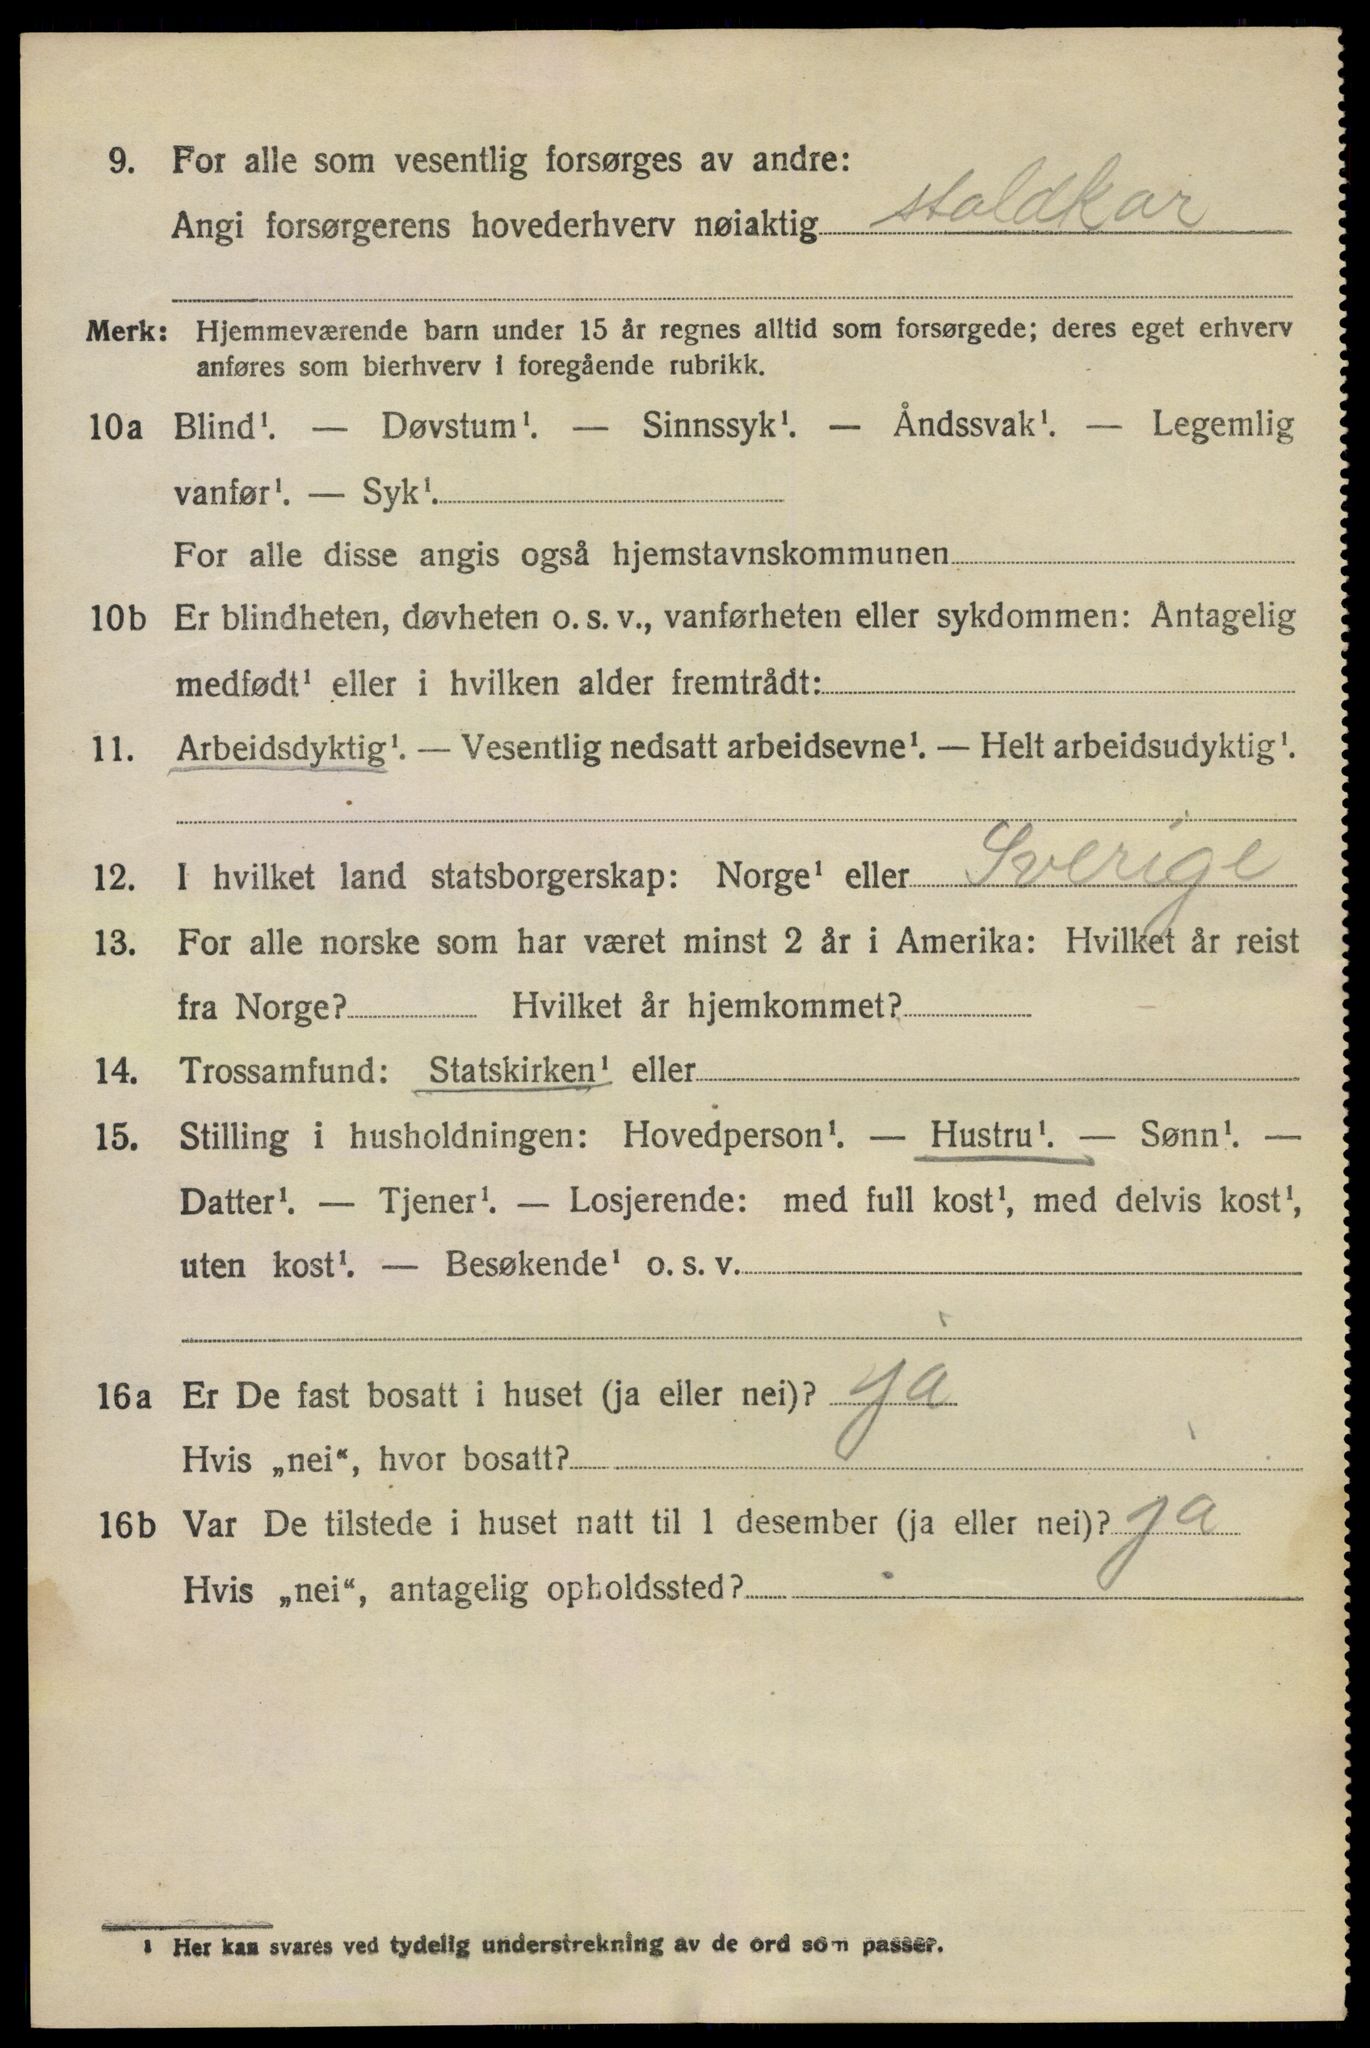 9. For alle som vesentlig forsørges av andre:
Angi forsørgerens hovederhverv nøiaktig staldkar
Merk: Hjemmeværende barn under 15 år regnes alltid som forsørgede; deres eget erhverv
anføres som bierhverv i foregående rubrikk.
10a Blind¹. — Døvstum¹. — Sinnssyk¹. — Åndssvak¹. — Legemlig
vanfør¹. — Syk¹.
For alle disse angis også hjemstavnskommunen
10b Er blindheten, døvheten o. s. v., vanførheten eller sykdommen: Antagelig
medfødt¹ eller i hvilken alder fremtrådt:
11. Arbeidsdyktig¹. — Vesentlig nedsatt arbeidsevne¹. — Helt arbeidsudyktig¹.
12. I hvilket land statsborgerskap: Norge¹ eller Sverige
13. For alle norske som har været minst 2 år i Amerika: Hvilket år reist
fra Norge? Hvilket år hjemkommet?
14. Trossamfund: Statskirken¹ eller
15. Stilling i husholdningen: Hovedperson¹. — Hustru¹. — Sønn¹. —
Datter¹. — Tjener¹. — Losjerende: med full kost¹, med delvis kost¹,
uten kost¹. — Besøkende¹ o. s. v.
16a Er De fast bosatt i huset (ja eller nei)? ja
Hvis „nei“, hvor bosatt?
16b Var De tilstede i huset natt til 1 desember (ja eller nei)? ja
Hvis „nei“, antagelig opholdssted?
¹ Her kan svares ved tydelig understrekning av de ord som passer.